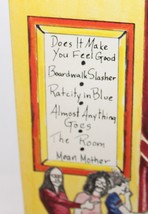 Does It Make
You Feel Good
Boardwalk Slasher
Ratcity in Blue
Almost Anything
Goes
The Room
Mean Mother